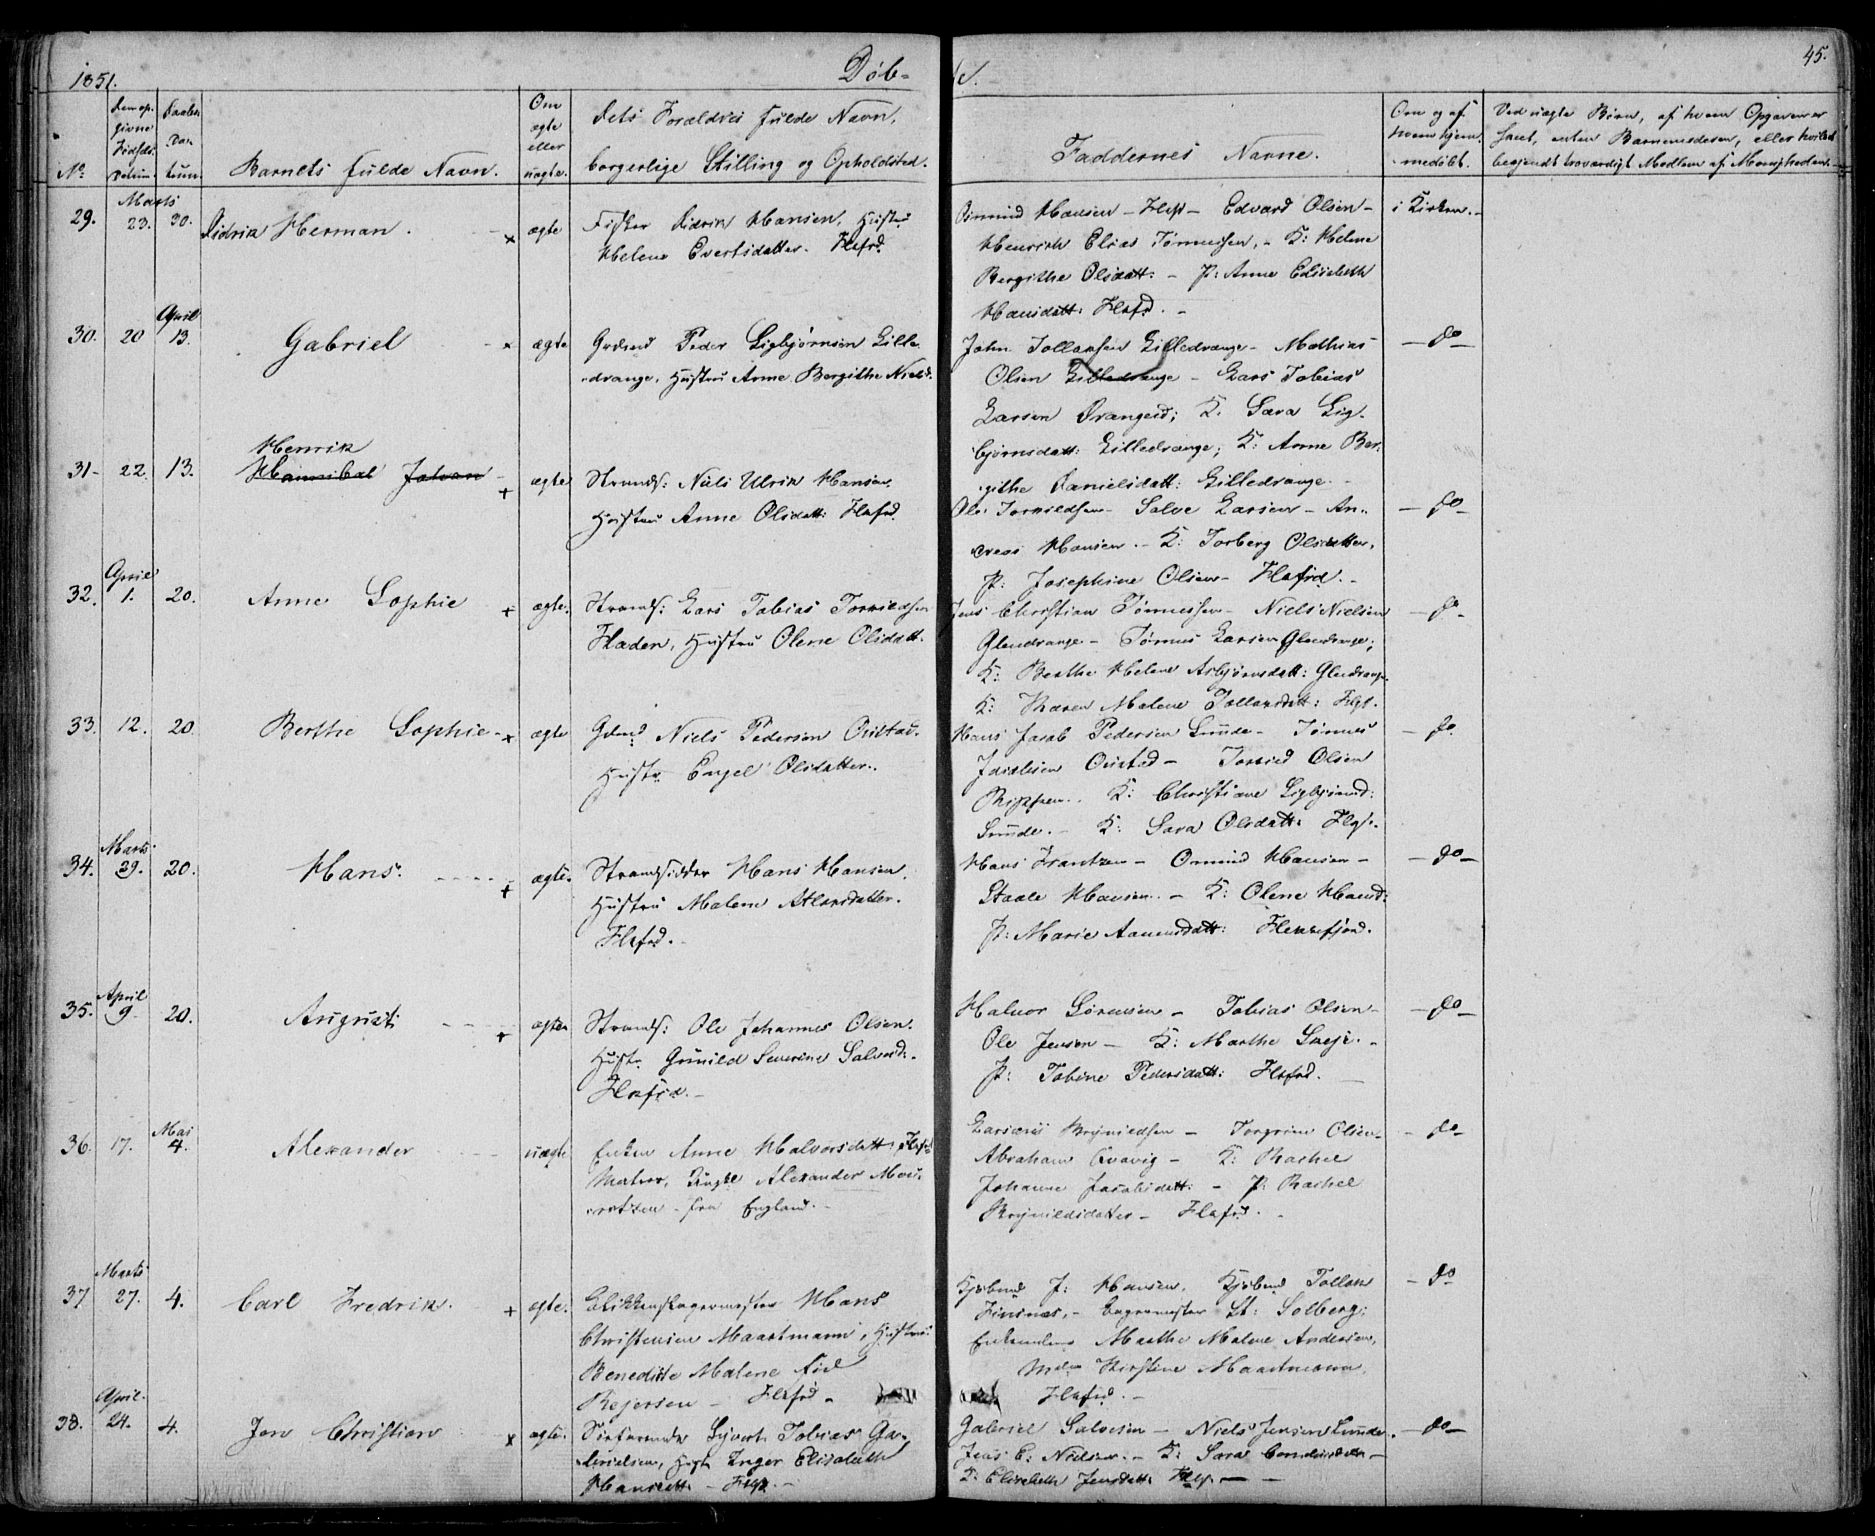 1851.
Døb-
te.
45.
No
Barnets fulde Navn.
Om ægte eller uægte.
Dets Forældres fulde Navn,
borgerlige Stilling og Opholdsted.
Faddernes Navne.
Om og af hvem hjemmedøbt.
Ved uægte Børn, af hvem Opgaven er
skeet, enten Barnemoderen, eller hvilket
bekjendt troværdigt Medlem af Menigheden.
29. Marts 23. 30. Didrik Herman. x ægte
Fisker Didrik Hansen, Hustru
Helene Evertsdatter. Flkfrd.
Omund Hansen - Flkf - Edvard Olsen -
Henrich Elias Tønnessen, - K: Helene
Bergithe Olsdatt: - P: Anne Elisabeth
Hansdatt: Flkfd. -
i Kirken. -
30. 20 April 13. Gabriel x ægte
Grdmd Peder Sigbjørnsen Lille-
drange, Hustru Anne Bergithe Nielsd.
John Tollaksen Lilledrange - Mathias
Olsen Lilledrange - Lars Tobias
Larsen Drangeid; K. Sara Sig-
bjørnsdatt: Lilledrange; K: Anne Ber-
githe Danielsdatt: Lilledrange. -
- do -
31 - 22. 13. Henrik
Hannibal Johan + ægte
Strands: Niels Ulrik Hansen,
Hustru Anne Olsdatt: Flkfrd.
Ole Torkildsen - Salve Larsen - An-
dreas Hansen. - K: Torberg Olsdatter,
P: Josephine Olsen - Flkfrd. -
- do -
32. April 1. 20. Anne Sophie + ægte.
Strands: Lars Tobias Torkildsen
Fladen, Hustru Olene Olsdatt.
Jens Christian Tønnessen - Niels Nielsen
Glendrange - Tønnes Larsen Glendrange;
K: Berthe Helene Asbjørnsdatt: Glendrange
K: Karen Malene Tollaksdatt: Flkf.
- do -
33. 12. 20 Berthe Sophie - x ægte
Gdmd Niels Pedersen Ouestad.
Hustr. Engel Olsdatter.
Hans Jacob Pedersen Sunde - Tønnes
Jacobsen Ouestad - Torkild Olsen
K: Christiane Sigbjørnsd:
Sunde. - K: Sara Olsdatt: Flkf.
- do.
34. Marts 29. 20. Hans. + ægte.
Strandsidder Hans Hansen,
Hustru Malene Atlaksdatter.
Flkfrd. -
Hans Frantzen - Omund Hansen -
Staale Hansen. - K: Olene Hansd:
P: Marie Aanensdatt: Flekkefjord.
- do -
35. April 9. 20. August + ægte
Strands: Ole Johannes Olsen.
Hustr. Gunild Severine Salvesd: -
Flkfrd. -
Halvor Sørensen - Tobias Olsen -
Ole Jensen - K: Marthe Sueje. -
P: Tobine Pedersdatt: Flkfrd. -
- do -
36. 17. Mai 4. Alexander uægte
Enken Anne Halvorsdatt: Flkfd
Matros, Ungkl Alexander
fra England. -
Brynildsen - Torgrim Olsen -
Abraham Qvavig - K: Rachel
Johanne Jacobsdatt: - P: Rachel
Brynildsdatter - Flkfrd. -
- do -
37 Marts 27. 4. Carl Fredrik. + ægte.
Blikkenslagermester Hans
Christensen Maartmann, Hustru
Benedicte Malene
Rejersen - Flkfrd -
Kjøbmd J: Hansen, Kjøbmd Tollak
Finsnæs, - Bagermester St: Solberg;
Marthe Malene Andersen,
Kirstine Maartmann.
Flkfrd. -
- do
38. April. 24. 4. Jen Christian x ægte.
Søefarende Syvert Tobias Ga-
brielsen, Hustr. Inger Elisabeth
Hansdatt: - Flkf. -
Gabriel Salvesen - Niels Jensen Sunde.
Jens C: Nielsen. - K: Sara
K: Elisabeth Jensdatt: Flkf. -
- do -